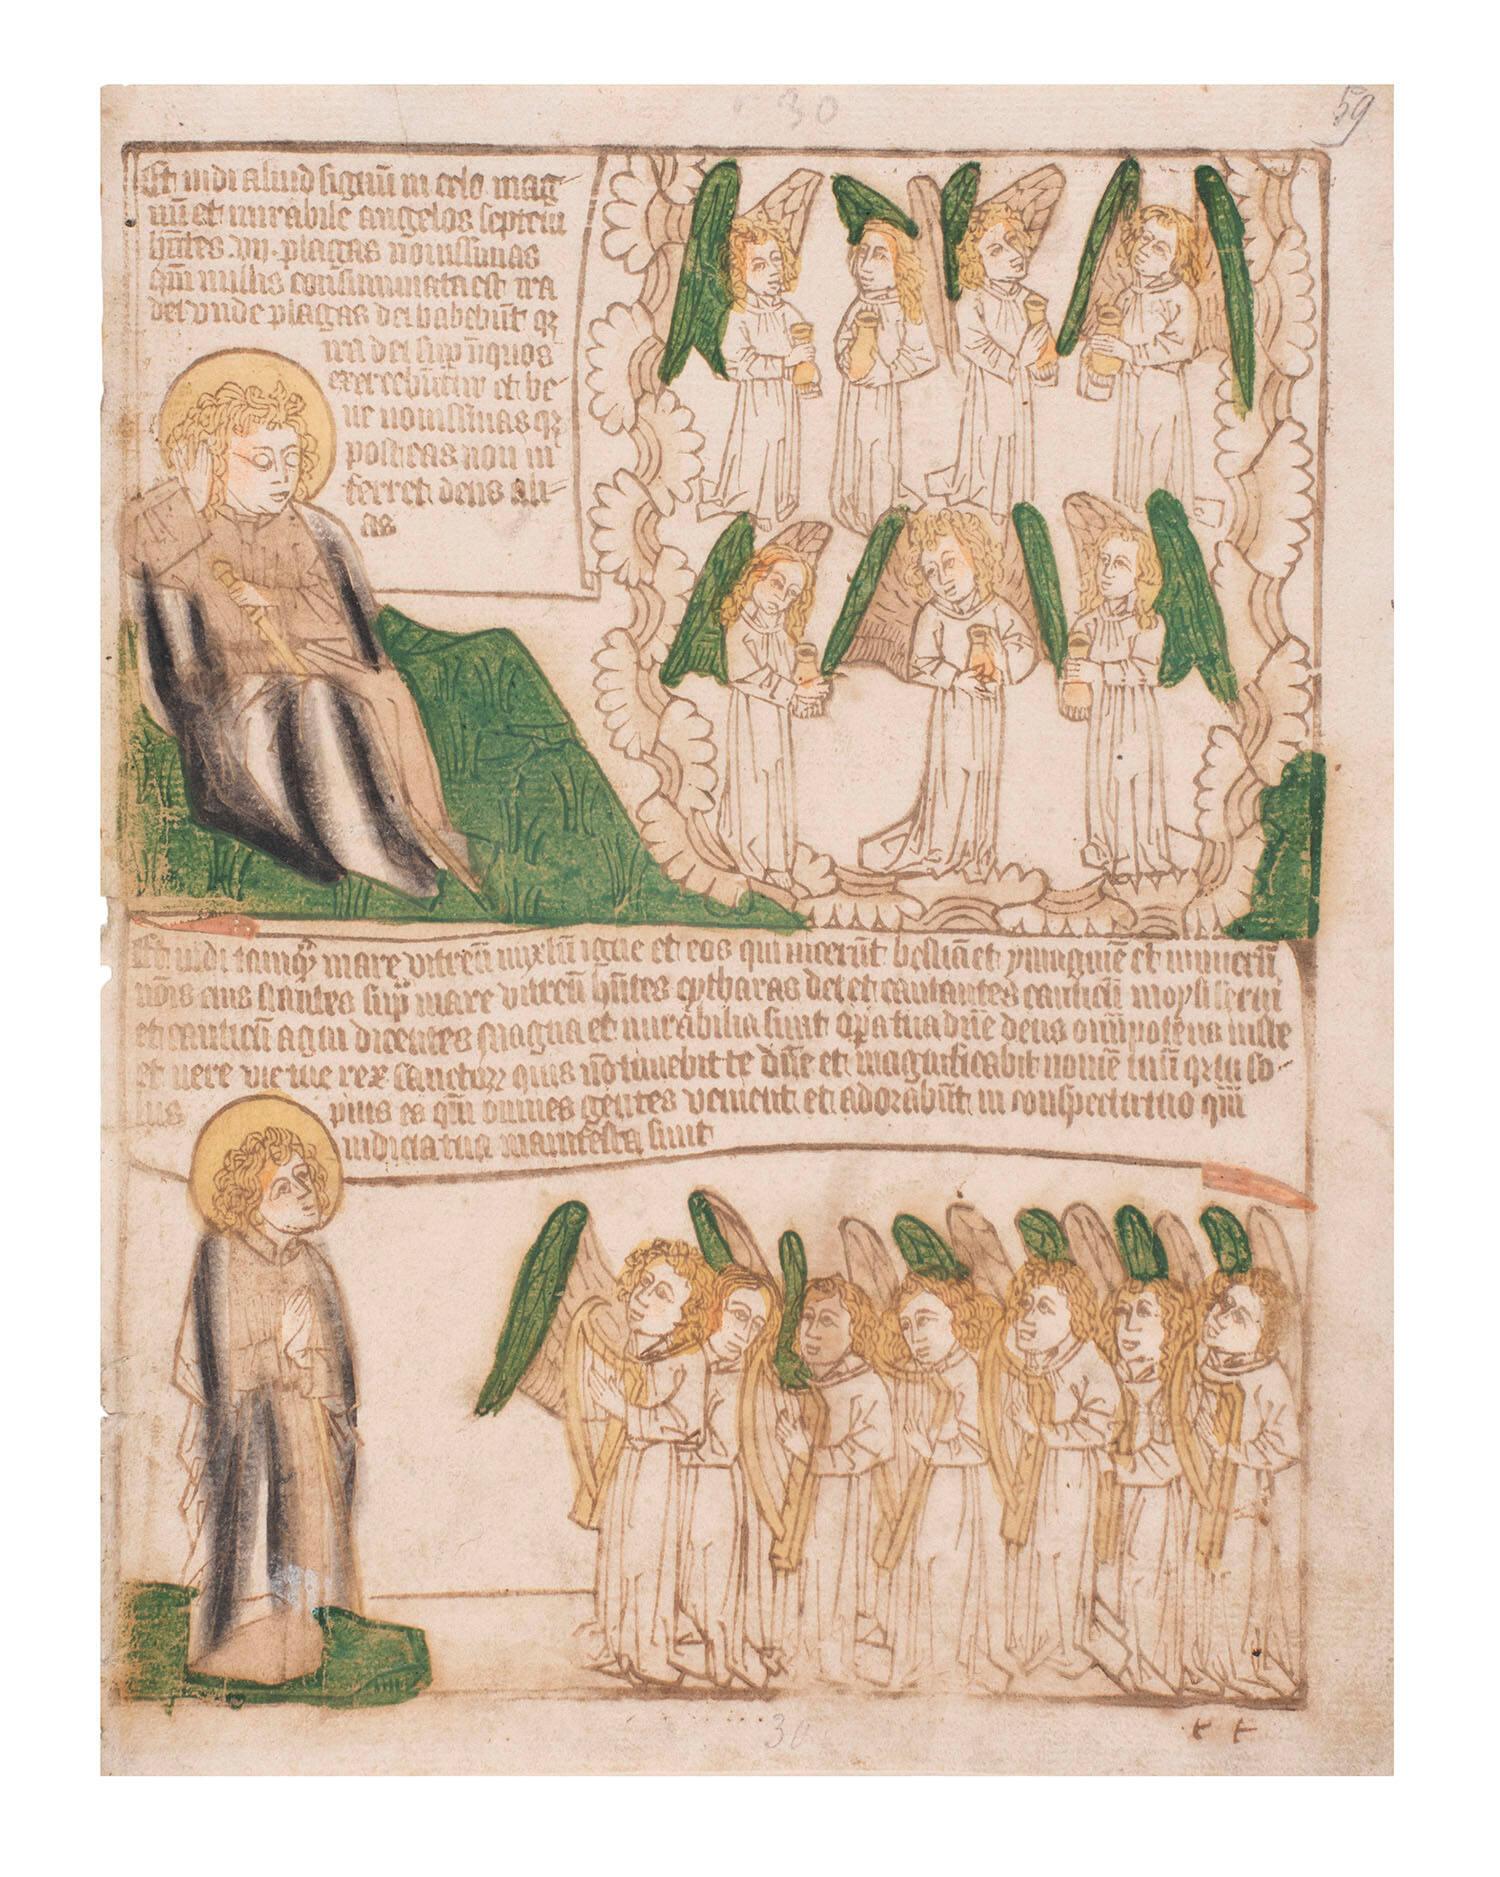 30
59
Et uidi aliud signū in celo mag-
nū et mirabile angelos septem
hn̄tes .vij. plagas nouissimas
qm̄ in illis consummata est ira
dei vnde plagas dei habebūt qꝫ
ira dei sup̄ iniquos
exercebūtur et be-
ne nouissimas qꝫ
posteas non in-
ferret deus ali-
as
Et uidi tamqᷓ mare vitreū mixtū igne et eos qui uicerūt bestiā et ymaginē et numerū
nōis eius stantes sup̄ mare vitreū hn̄tes cytharas dei et cantantes canticū moysi serui
et canticū agni dicentes Magna et mirabilia sunt oꝑa tua dn̄e deus omīpotens iuste
et uere vie tue rex sanctoꝝ quis nō timebit te dn̄e et magnificabit nomē tuū qꝛ tu so-
lus pius es qm̄ omnes gentes venient et adorabūt in conspectu tuo qm̄
iudicia tua manifesta sunt
30
t t